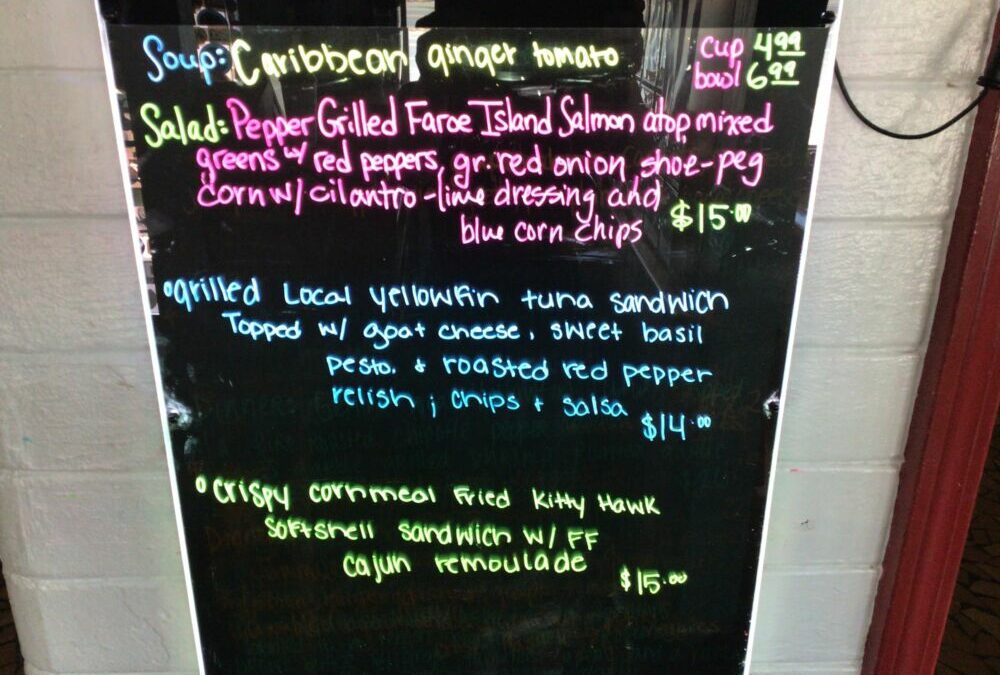 Soup: Caribbean ginger tomato cup 4.99
bowl 6.99
Salad: Pepper Grilled Faroe Island Salmon atop mixed
greens w/ red peppers, gr. red onion, shoe-peg
corn w/ cilantro-lime dressing and
blue corn chips $15.00
•grilled Local yellowfin tuna sandwich
Topped w/ goat cheese, sweet basil
pesto. + roasted red pepper
relish ; chips + salsa
$14.00
•crispy cornmeal Fried Kitty Hawk
softshell sandwich w/ FF
cajun remoulade
$15.00